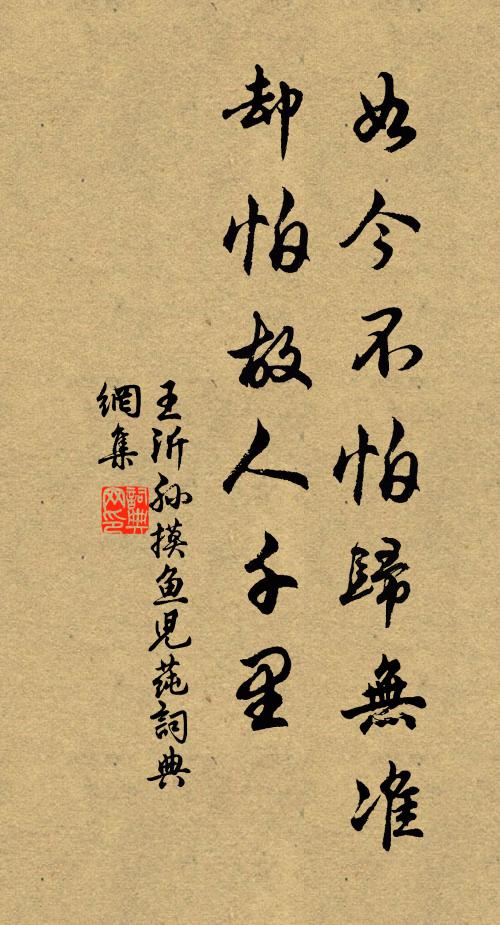 如今不怕歸無准
却怕故人千里
王沂孫摸鱼児莼詞典
網集
詞典
网印